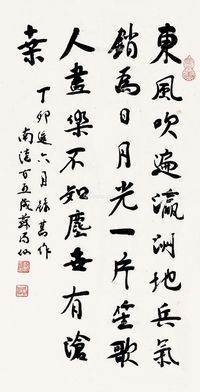 東風吹遍瀛洲地兵氣
銷為日月光一片笙歌
人盡樂不知塵世有滄
桑
丁卯延六月錄舊作
南清百五歲蘇局仙